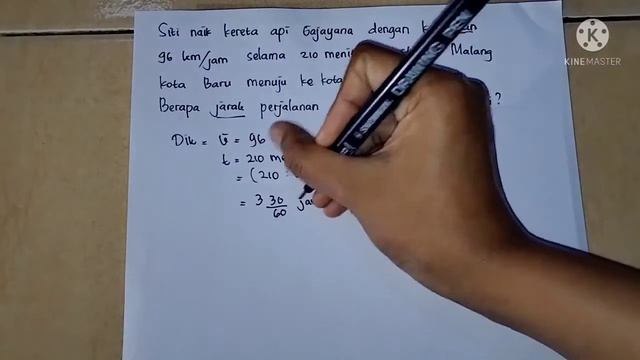 Siti naik kereta api Gajayana dengan
96 km/jam selama 210 Malang
kota Baru menuju ke kota
Berapa jarak perjalanan ?
Dik = v̄ = 96
t = 210
= (210 :
= 3 30/60
KINEMASTER